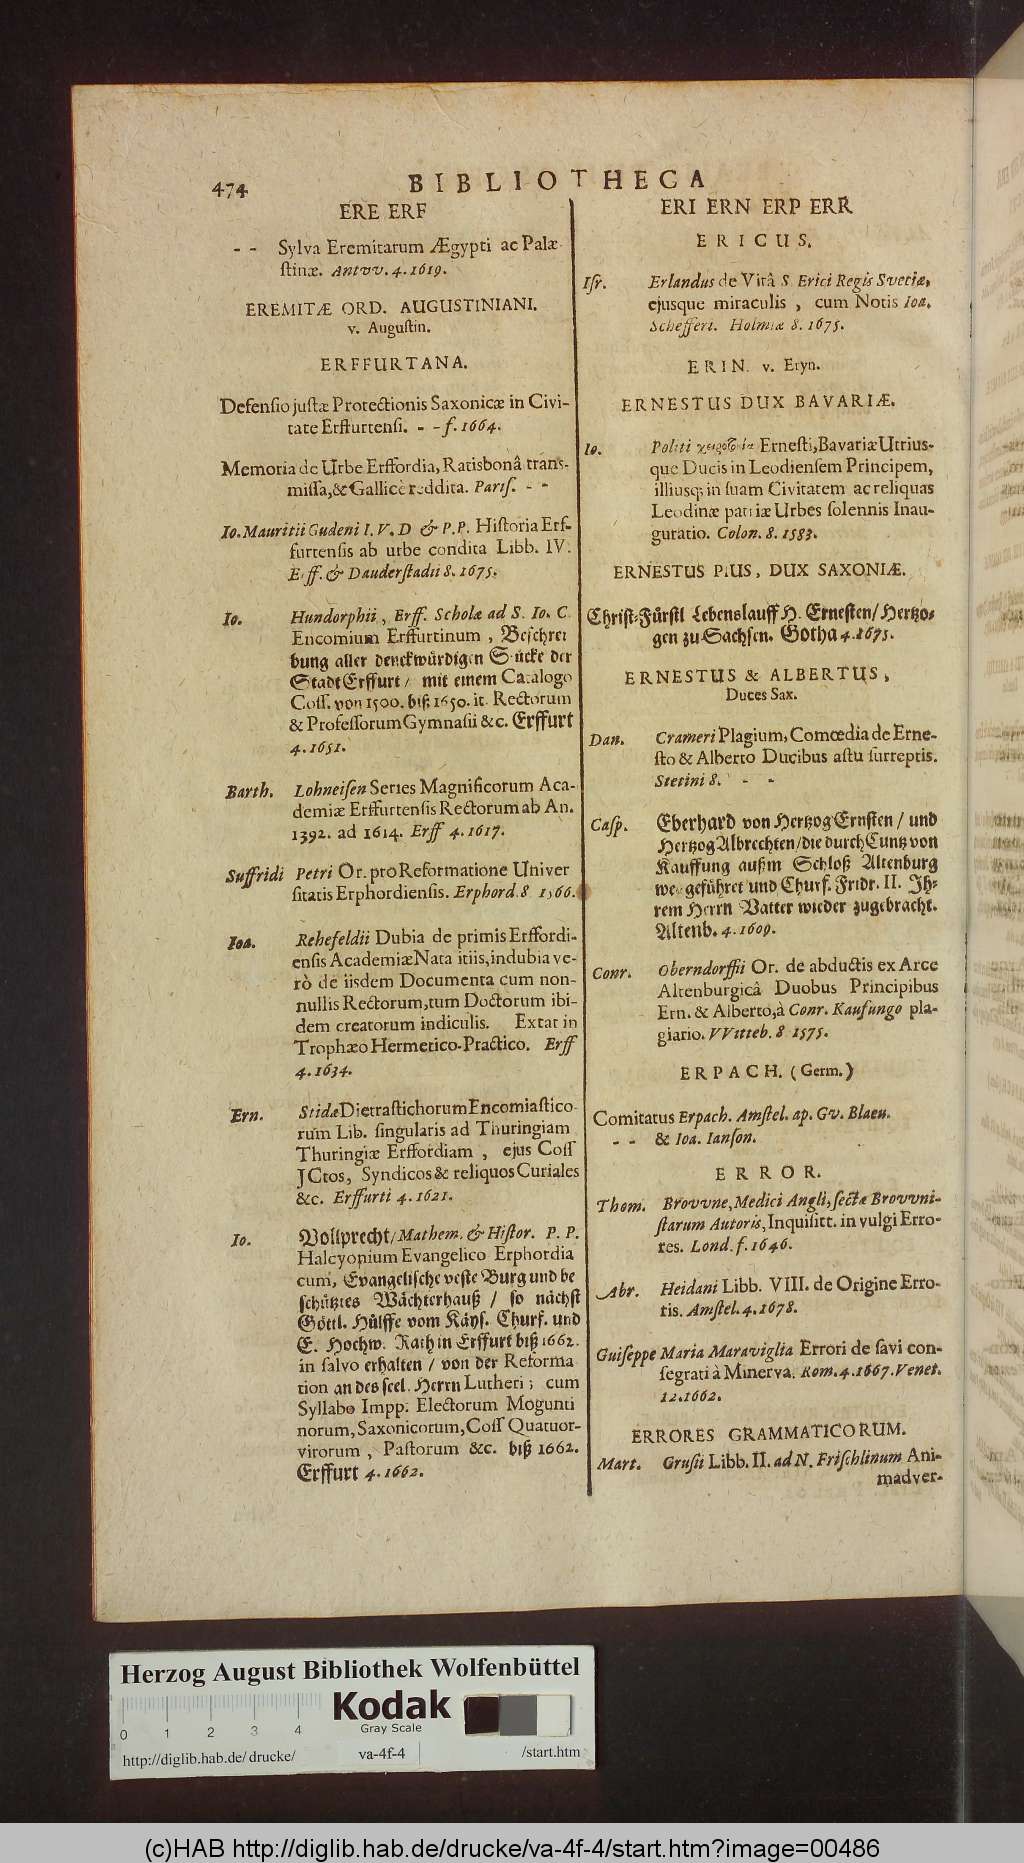 474
BIBLIOTHECA
ERE ERF
- - Sylva Eremitarum Ægypti ac Palæ-
ſtinæ. Antvv. 4. 1619.
EREMITÆ ORD. AUGUSTINIANI.
v. Auguſtin.
ERFFURTANA.
Defenſio juſtæ Protectionis Saxonicæ in Civi-
tate Erffurtenſi. - - f. 1664.
Memoria de Urbe Erffordia, Ratisbonâ trans-
miſſa, & Gallicè reddita. Pariſ. - -
Io. Mauritii Gudeni I. V. D & P. P. Hiſtoria Erf-
furtenſis ab urbe condita Libb. IV.
Erff. & Dauderſtadii 8. 1675.
Io. Hundorphii, Erff. Scholæ ad S. Io. C.
Encomium Erffurtinum, Beſchrei
bung aller denckwürdigen Stücke der
Stadt Erffurt / mit einem Catalogo
Coſſ. von 1500. biß 1650. it. Rectorum
& Profeſſorum Gymnaſii &c. Erffurt
4. 1651.
Barth. Lohneiſen Series Magnificorum Aca-
demiæ Erffurtenſis Rectorum ab An.
1392. ad 1614. Erff 4. 1617.
Suffridi Petri Or. pro Reformatione Univer
ſitatis Erphordienſis. Erphord. 8 1566.
Ioa. Rehefeldii Dubia de primis Erffordi-
enſis Academiæ Nata itiis, indubia ve-
rò de iisdem Documenta cum non-
nullis Rectorum, tum Doctorum ibi-
dem creatorum indiculis. Extat in
Trophæo Hermetico-Practico. Erff
4. 1634.
Ern. Stidæ Dietraſtichorum Encomiaſtico-
rum Lib. ſingularis ad Thuringiam
Thuringiæ Erffordiam, ejus Coſſ
JCtos, Syndicos & reliquos Curiales
&c. Erffurti 4. 1621.
Io. Vollprecht / Mathem. & Hiſtor. P. P.
Halcyonium Evangelico Erphordia
cum, Evangeliſche veſte Burg und be
ſchütztes Wächterhauß / ſo nächſt
Göttl. Hülffe vom Käyſ. Churf. und
E. Hochw. Rath in Erffurt biß 1662.
in ſalvo erhalten / von der Reforma
tion an des ſeel. Herrn Lutheri; cum
Syllabo Impp. Electorum Mogunti
norum, Saxonicorum, Coſſ Quatuor-
virorum, Paſtorum &c. biß 1662.
Erffurt 4. 1662.
ERI ERN ERP ERR
ERICUS.
Iſr. Erlandus de Vitâ S. Erici Regis Sveciæ,
ejusque miraculis, cum Notis Ioa.
Scheffert. Holmiæ 8. 1675.
ERIN. v. Eryn.
ERNESTUS DUX BAVARIÆ.
Io. Politi Erneſti, Bavariæ Utrius-
que Ducis in Leodienſem Principem,
illiusq; in ſuam Civitatem ac reliquas
Leodinæ patriæ Urbes ſolennis Inau-
guratio. Colon. 8. 1583.
ERNESTUS PIUS, DUX SAXONIÆ.
Chriſt-Fürſtl Lebenslauff H. Erneſten / Hertzo-
gen zu Sachſen. Gotha 4. 1675.
ERNESTUS & ALBERTUS,
Duces Sax.
Dan. Crameri Plagium, Comœdia de Erne-
ſto & Alberto Ducibus aſtu ſurreptis.
Stetini 8. - -
Caſp. Eberhard von Hertzog Ernſten / und
Hertzog Albrechten / die durch Cuntz von
Kauffung außm Schloß Altenburg
weggeführet und Churf. Fridr. II. Ih-
rem Herrn Vatter wieder zugebracht.
Altenb. 4. 1609.
Conr. Oberndorffii Or. de abductis ex Arce
Altenburgicâ Duobus Principibus
Ern. & Alberto, à Conr. Kaufungo pla-
giario. VVitteb. 8 1575.
ERPACH. (Germ.)
Comitatus Erpach. Amſtel. ap. Gv. Blaeu.
- - & Ioa. Ianſon.
ERROR.
Thom. Brovvne, Medici Angli, ſectæ Brovvni-
ſtarum Autoris, Inquiſitt. in vulgi Erro-
res. Lond. f. 1646.
Abr. Heidani Libb. VIII. de Origine Erro-
ris. Amſtel. 4. 1678.
Guiſeppe Maria Maraviglia Errori de ſavi con-
ſegrati à Minerva. Rom. 4. 1667. Venet.
12. 1662.
ERRORES GRAMMATICORUM.
Mart. Cruſii Libb. II. ad N. Friſchlinum Ani-
madver-
Herzog August Bibliothek Wolfenbüttel
Kodak
Gray Scale
0 1 2 3 4
http://diglib.hab.de/drucke/ va-4f-4 /start.htm
(c)HAB http://diglib.hab.de/drucke/va-4f-4/start.htm?image=00486